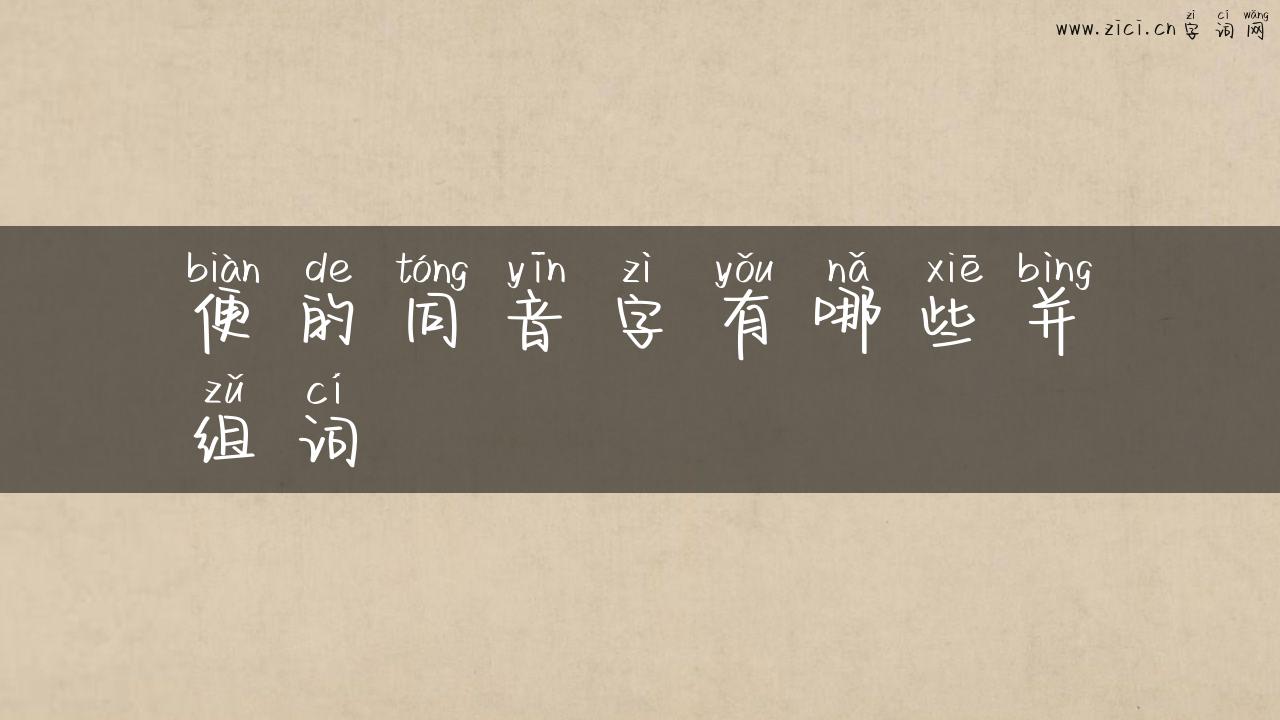 zì cí wǎng
www.zici.cn字词网
biàn de tóng yīn zì yǒu nǎ xiē bìng
便的同音字有哪些并
zǔ cí
组词